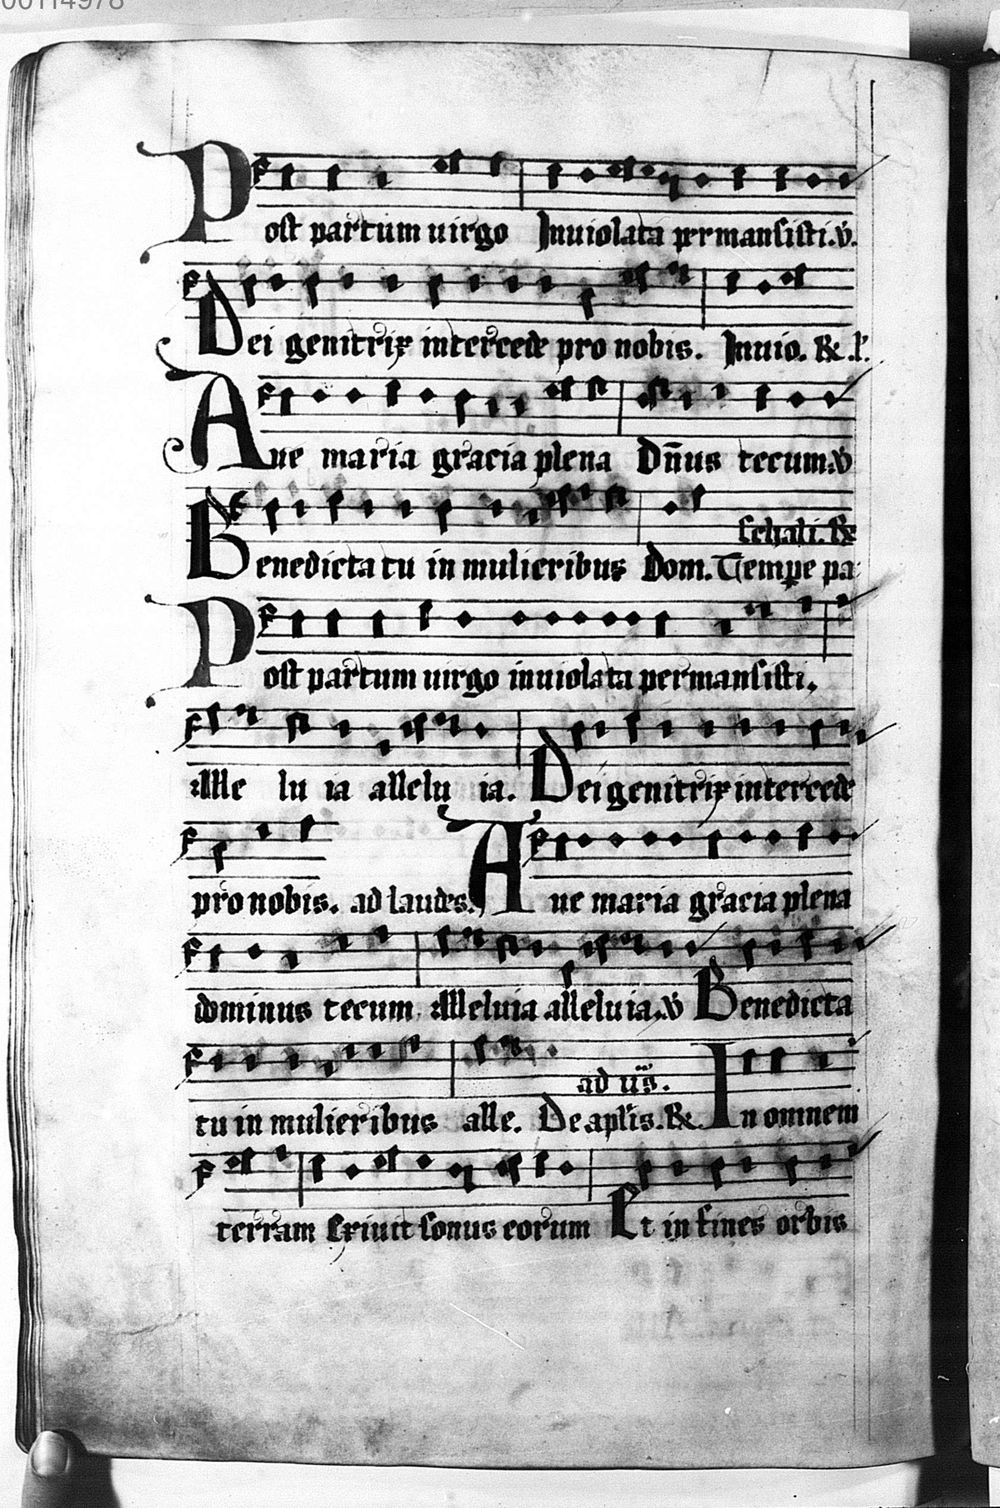 00114978
Post partum uirgo Inuiolata permansisti. v̄.
Dei genitrix intercede pro nobis. Inuio. &.
Aue maria gracia plena Dn̄us tecum. v̄
schali. &
Benedicta tu in mulieribus Dom. Tempe pa
Post partum uirgo inuiolata permansisti.
Alle lu ia allelu ia. Dei genitrix intercede
pro nobis. ad laudes. Aue maria gracia plena
dominus tecum Alleluia alleluia. v̄ Benedicta
ad
tu in mulieribus alle. De apl̄is. & In omnem
terram Exiuit sonus eorum Et in fines orbis